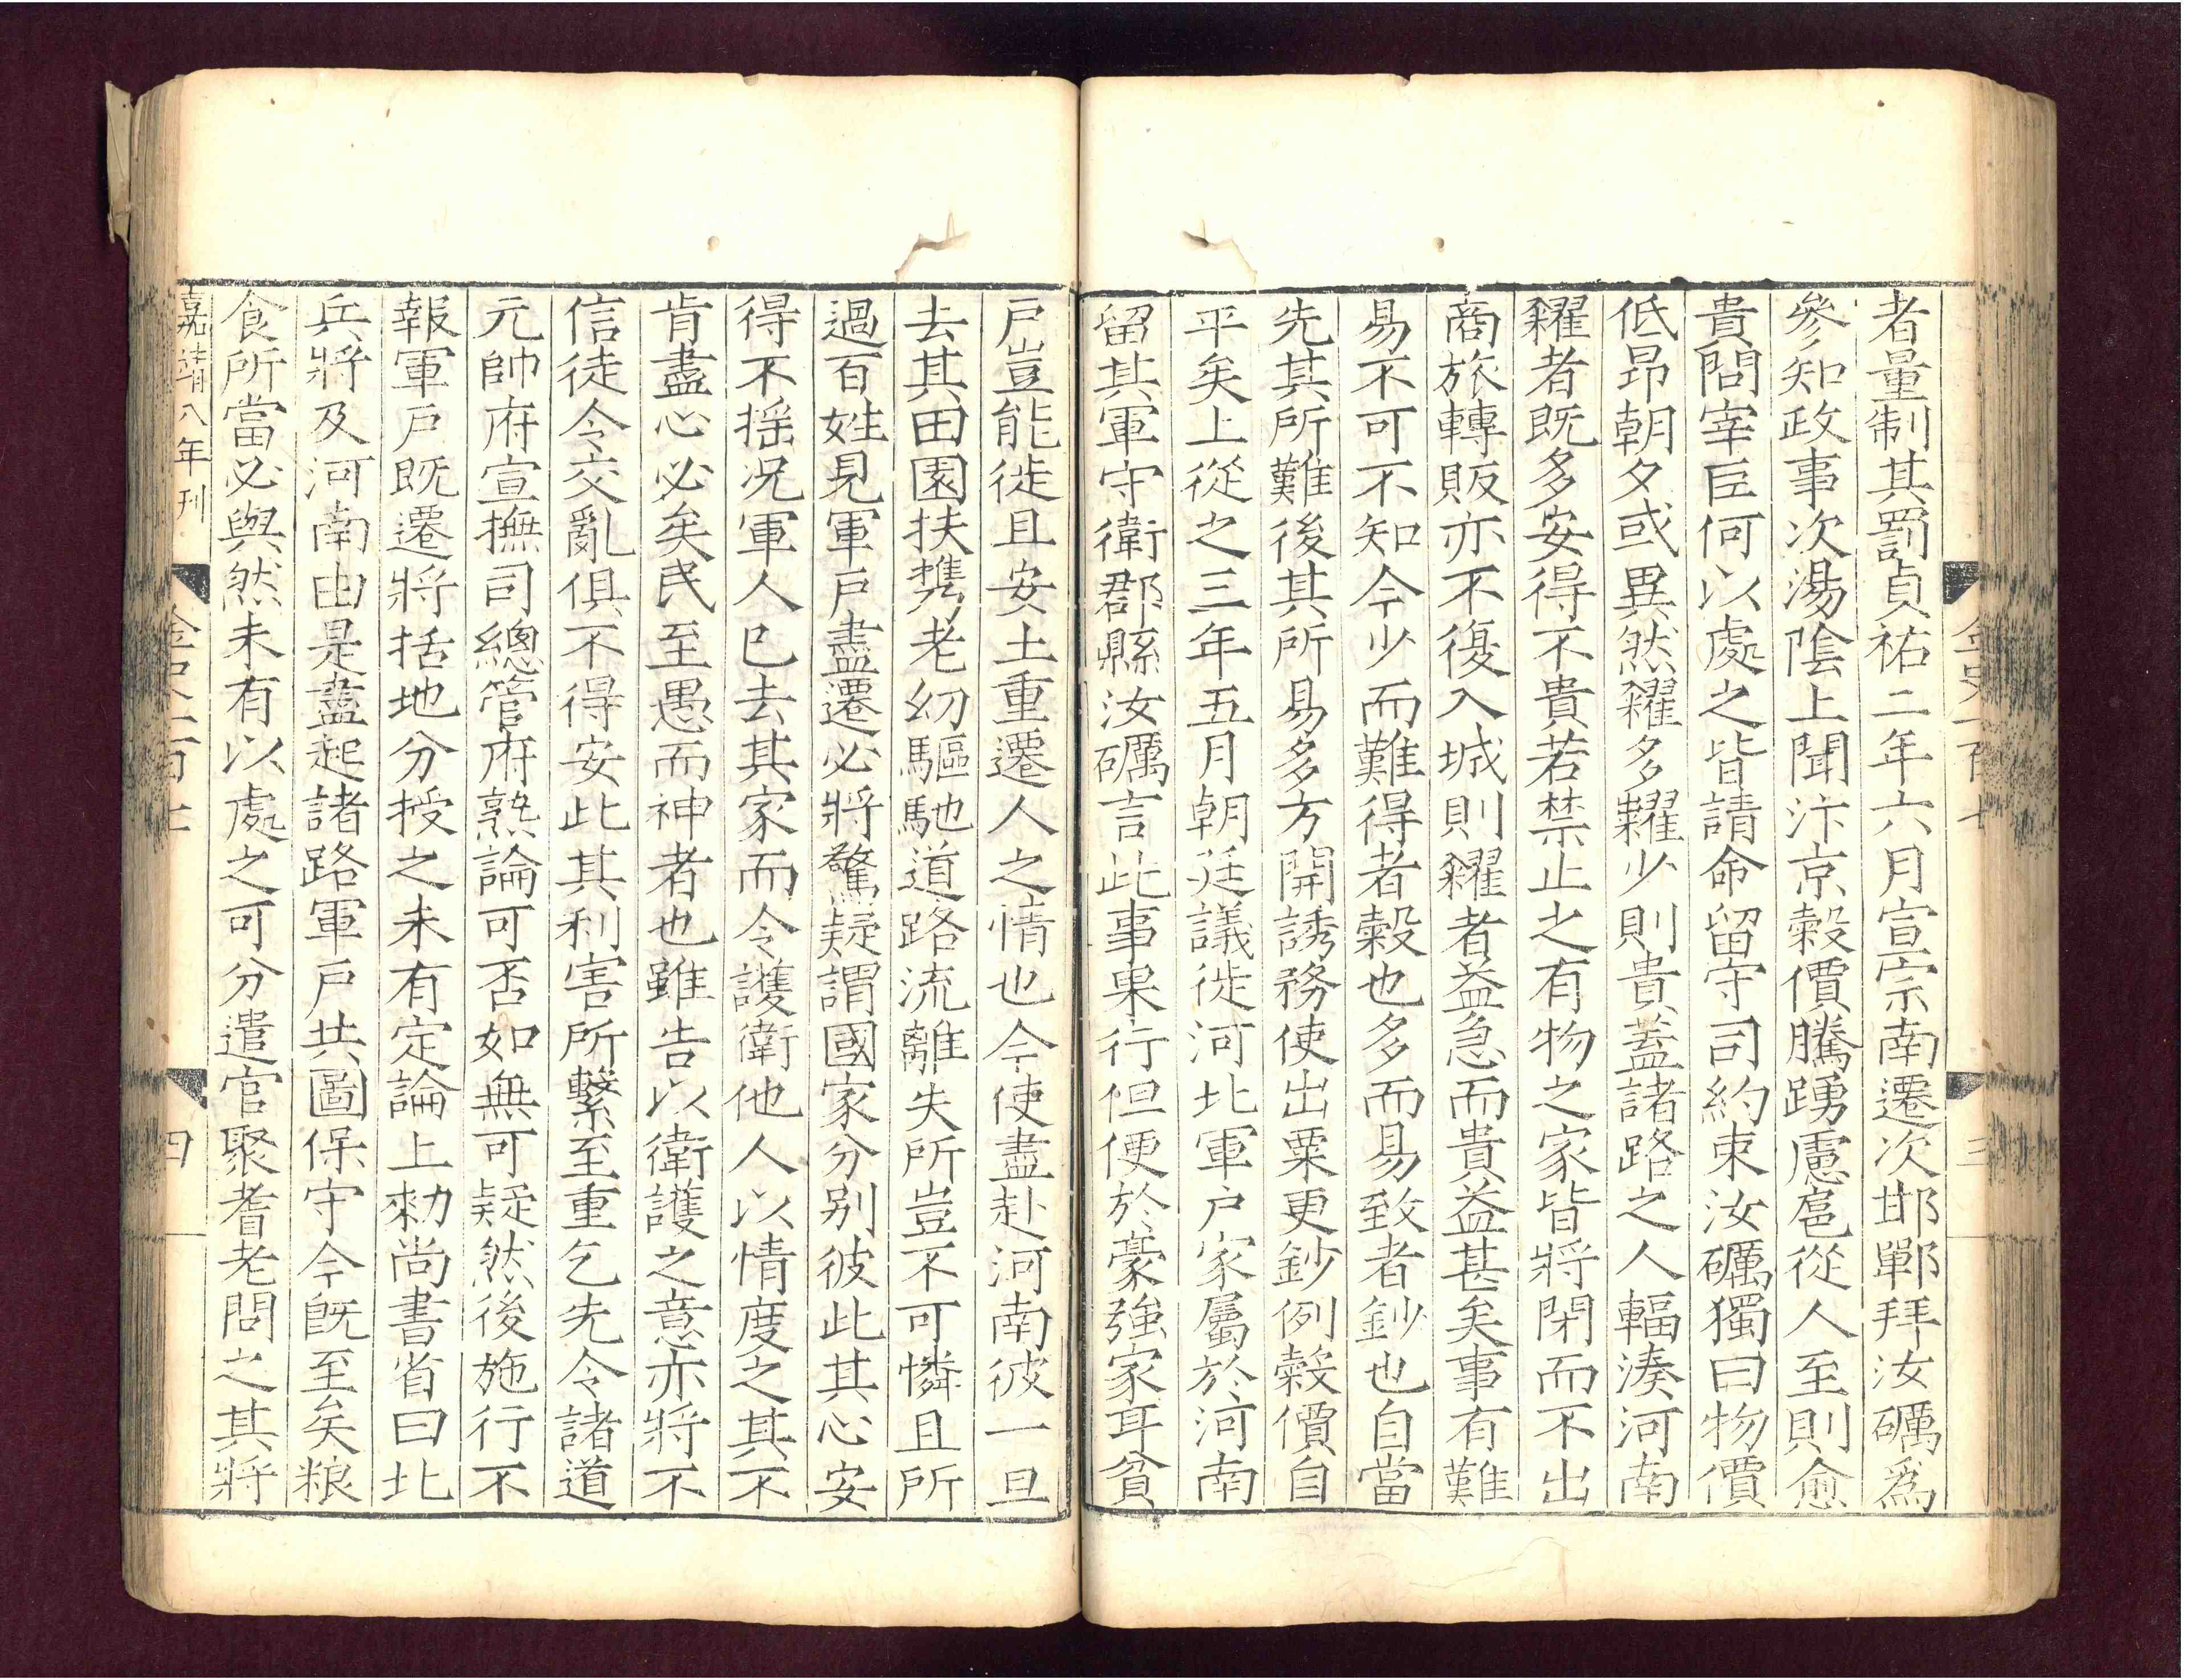 者量制其罰貞祐二年六月宣宗南遷次邯鄲拜汝礪爲
參知政事次湯陰上聞汴京穀價騰踴慮扈從人至則愈
貴問宰臣何以處之皆請命留守司約束汝礪獨曰物價
低昂朝夕或異然糴多糶少則貴蓋諸路之人輻湊河南
糴者既多安得不貴若禁止之有物之家皆將閉而不出
商旅轉販亦不復入城則糴者益急而貴益甚矣事有難
易不可不知今少而難得者穀也多而易致者鈔也自當
先其所難後其所易多方開誘務使出粟更鈔例穀價自
平矣上從之三年五月朝廷議徙河北軍户家屬於河南
留其軍守衛郡縣汝礪言此事果行但便於豪強家耳貧
戸豈能徙且安土重遷人之情也今使盡赴河南彼一旦
去其田園扶攜老幼驅馳道路流離失所豈不可憐且所
過百姓見軍戸盡遷必將驚疑謂國家分别彼此其心安
得不揺况軍人已去其家而令護衛他人以情度之其不
肯盡心必矣民至愚而神者也雖告以衛護之意亦將不
信徒令交亂俱不得安此其利害所繫至重乞先令諸道
元帥府宣撫司總管府熟論可否如無可疑然後施行不
報軍戸既遷將括地分授之未有定論上勑尚書省曰北
兵將及河南由是盡起諸路軍戸共圖保守今既至矣粮
食所當必與然未有以處之可分遣官聚耆老問之其將
嘉靖八年刊
四